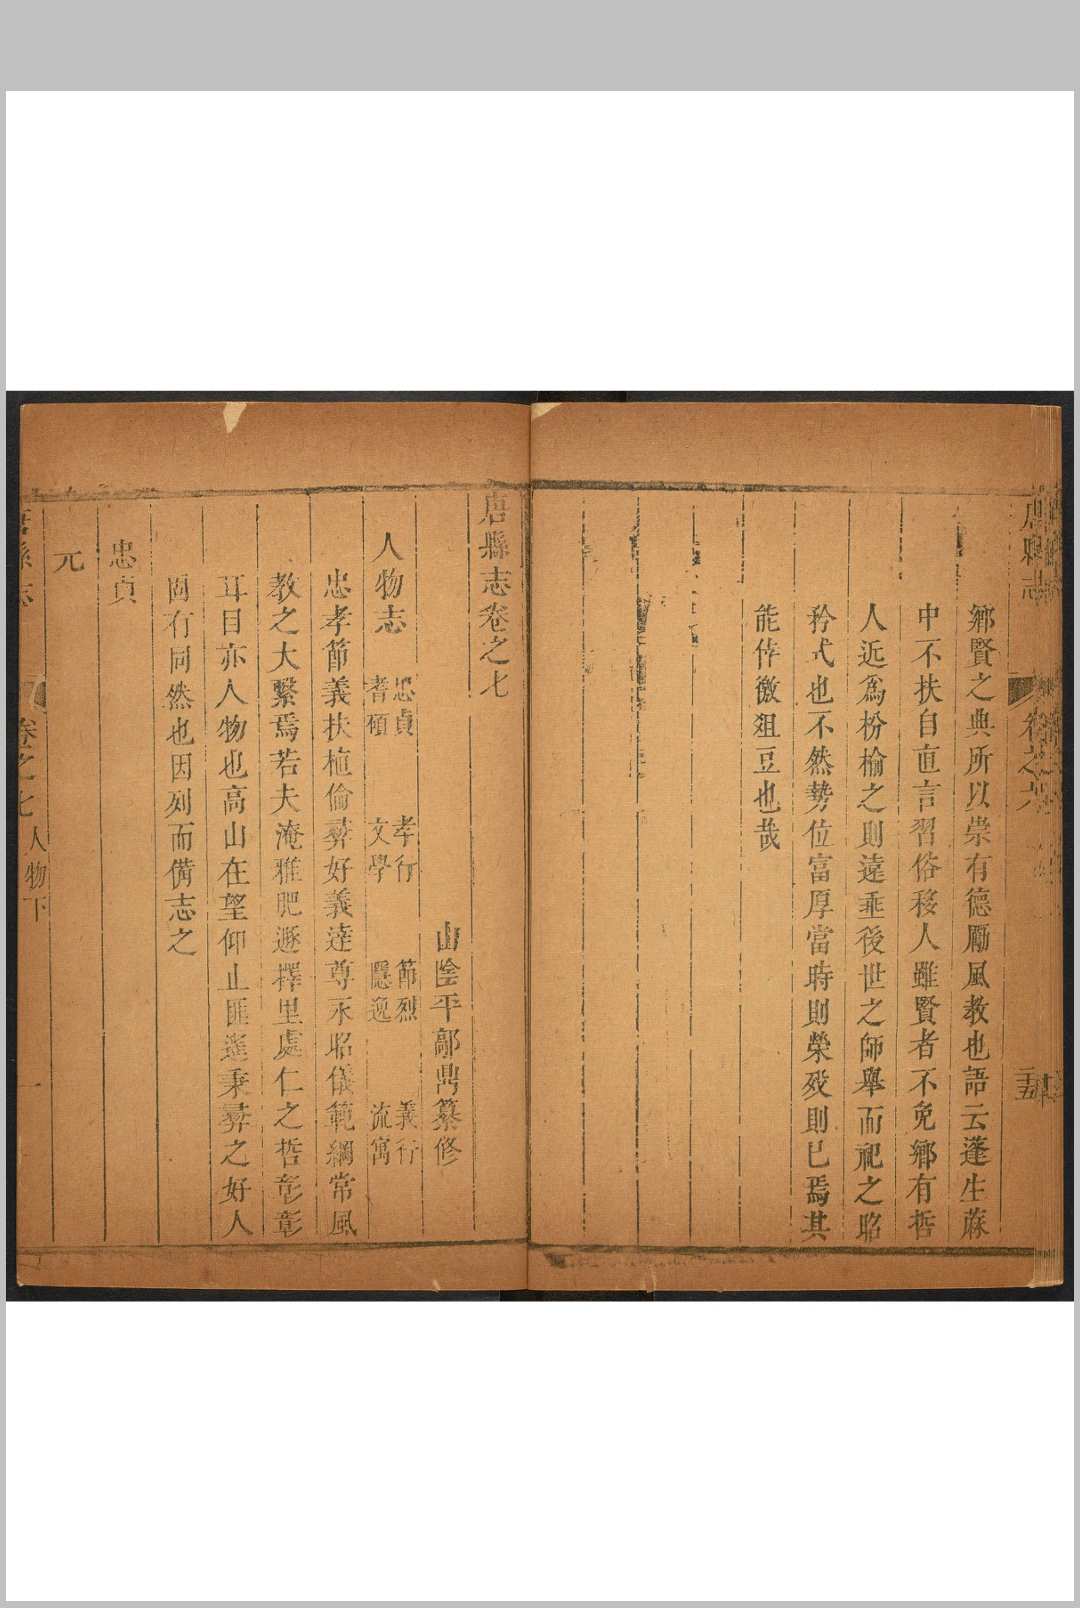 唐縣志
卷之六
二十五
鄉賢之典所以崇有德勵風教也語云蓬生蔴
中不扶自直言習俗移人雖賢者不免鄉有哲
人近爲枌榆之則遠垂後世之師舉而祀之昭
矜式也不然勢位富厚當時則榮歿則已焉其
能倖徼俎豆也哉
唐縣志卷之七
山陰平郿鼎纂修
人物志 忠貞 孝行 節烈 義行
耆碩 文學 隱逸 流寓
忠孝節義扶植倫彛好義達尊永昭儀範綱常風
教之大繫焉若夫淹雅肥遯擇里處仁之哲彰彰
耳目亦人物也高山在望仰止匪遙秉彛之好人
固有同然也因列而備志之
忠貞
元
唐縣志
卷之七 人物下
一